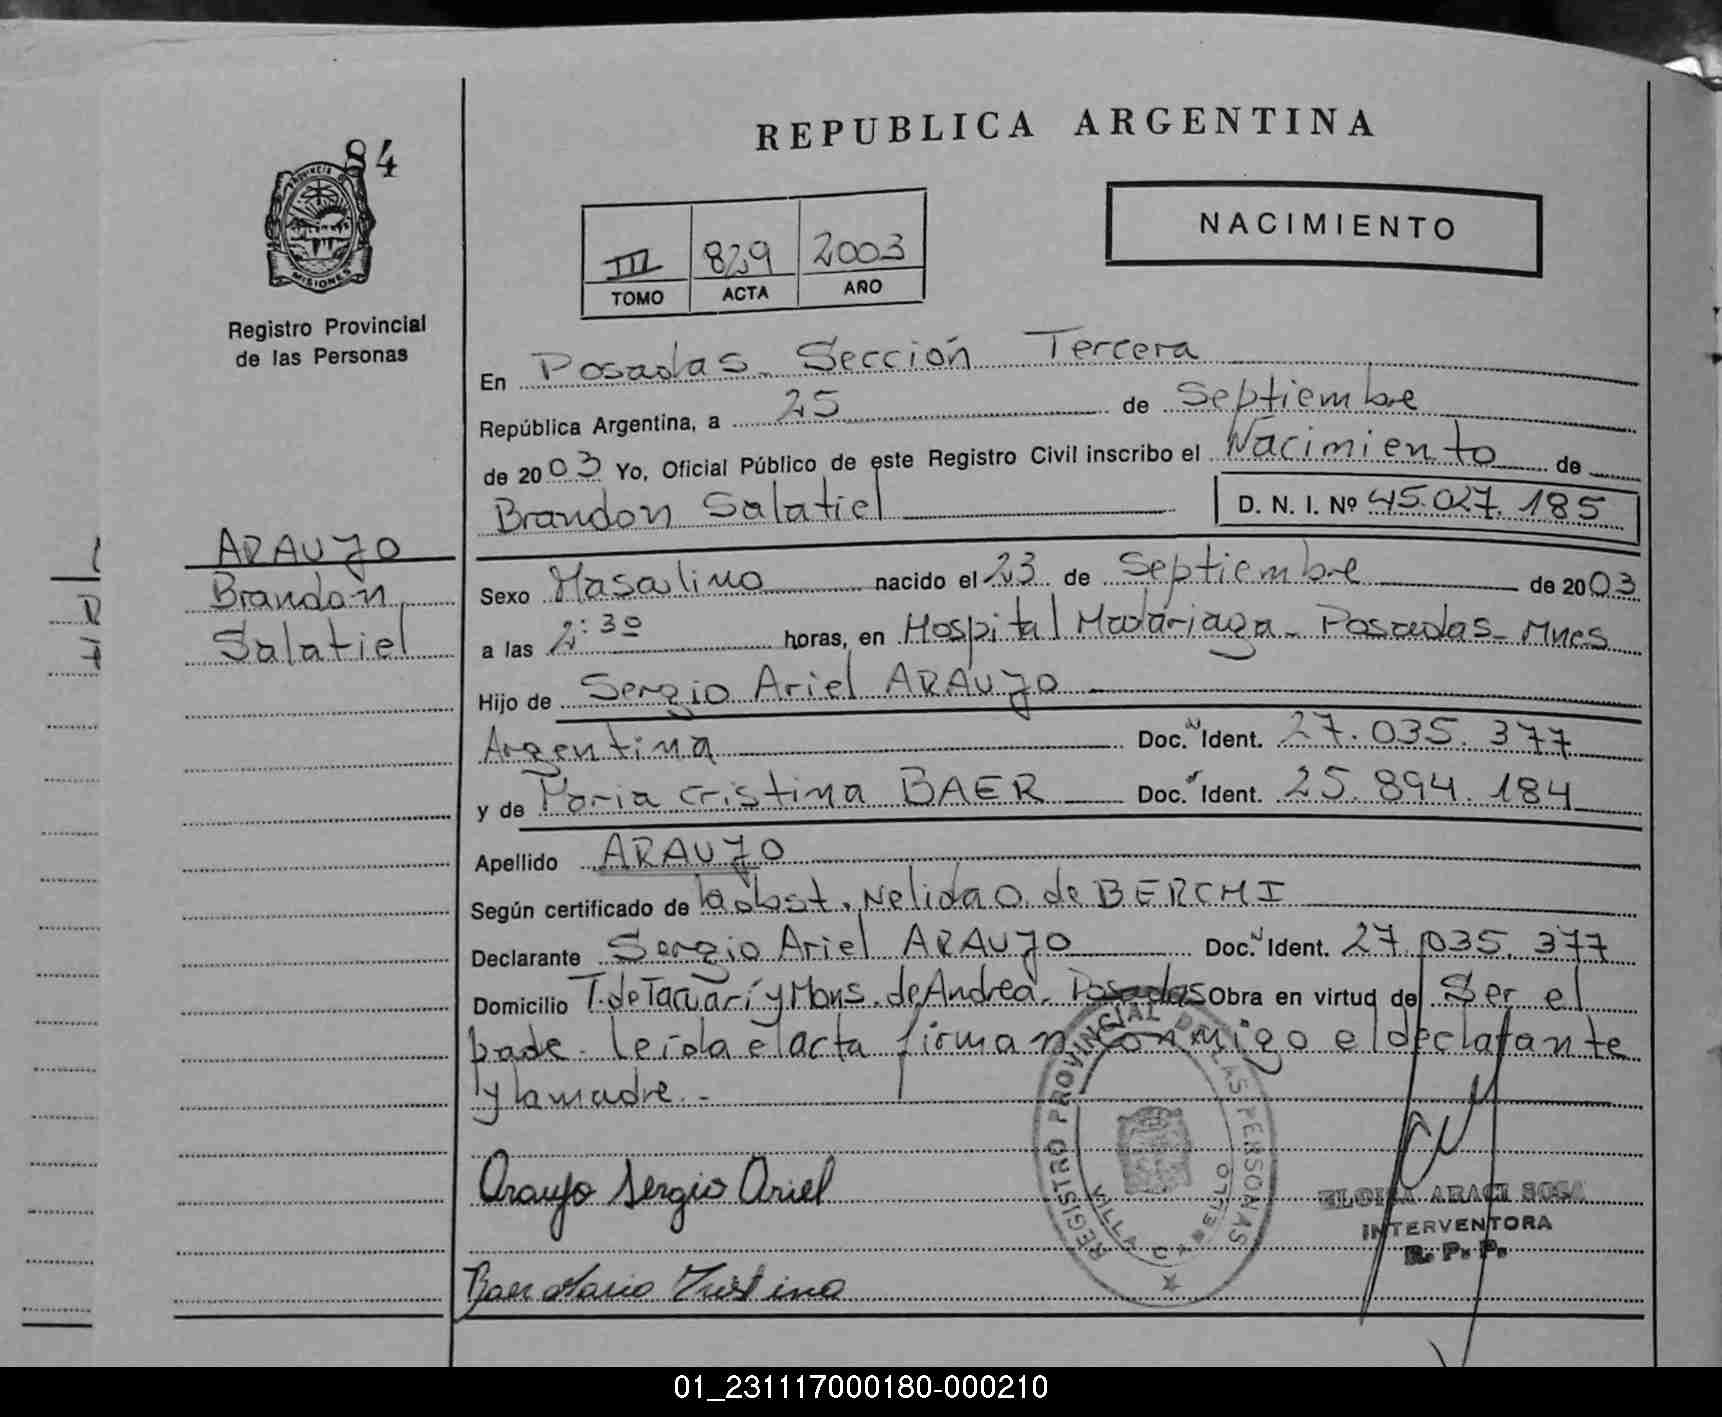 84
PROVINCIA DE
MISIONES
Registro Provincial
de las Personas
ARAUJO
Brandon
Salatiel
REPUBLICA ARGENTINA
NACIMIENTO
III 829 2003
TOMO ACTA AÑO
En Posadas Sección Tercera
República Argentina, a 25 de Septiembre
de 2003 Yo, Oficial Público de este Registro Civil inscribo el Nacimiento de
Brandon Salatiel D. N. I. Nº 45.027.185
Sexo Masculino nacido el 23 de Septiembre de 2003
a las 2:30 horas, en Hospital Madariaga - Posadas - Mnes
Hijo de Sergio Ariel ARAUJO
Argentina Doc. Ident. 27.035.377
y de Maria Cristina BAER Doc. Ident. 25.894.184
Apellido ARAUJO
Según certificado de la obst. Nelida O. de BERCHI
Declarante Sergio Ariel ARAUJO Doc. Ident. 27.035.377
Domicilio T. de Tacuarí y Mons. de Andrea - Posadas Obra en virtud de Ser el
padre - leída el acta firman conmigo el declarante
y la madre. -
Araujo Sergio Ariel
Baer Maria Cristina
REGISTRO PROVINCIAL DE LAS PERSONAS
VILLA CABELLO
ELOISA ARACI SOSA
INTERVENTORA
R. P. P.
01_231117000180-000210